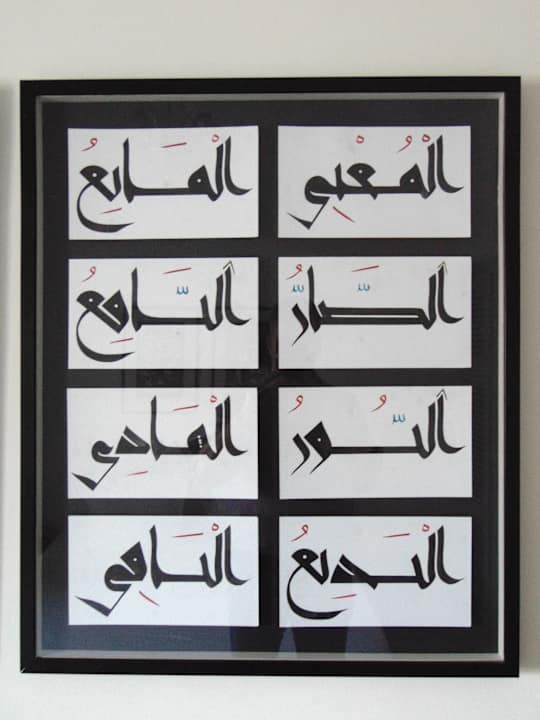 الْمُغْنِي
الْمَانِعُ
الضَّارُّ
النَّافِعُ
النُّورُ
الْهَادِي
الْبَدِيعُ
الْبَاقِي